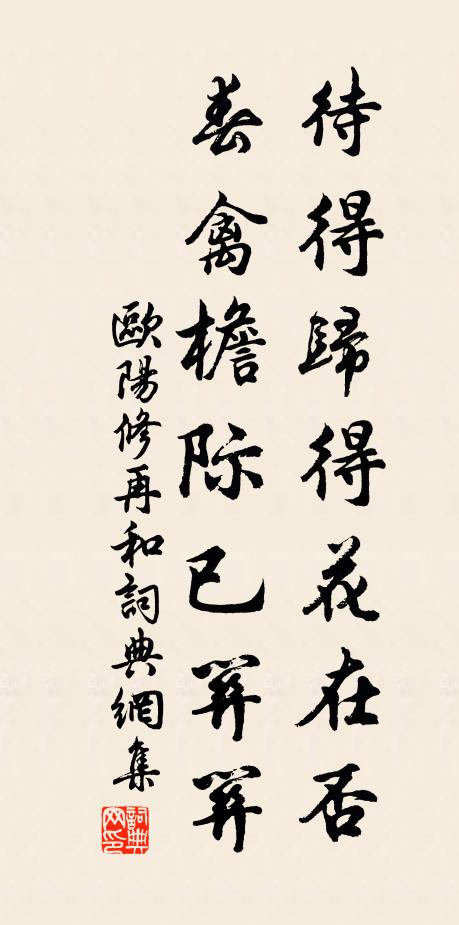 待得歸得花在否
春禽檐际已關關
歐陽修再和詞典網集
詞典网印